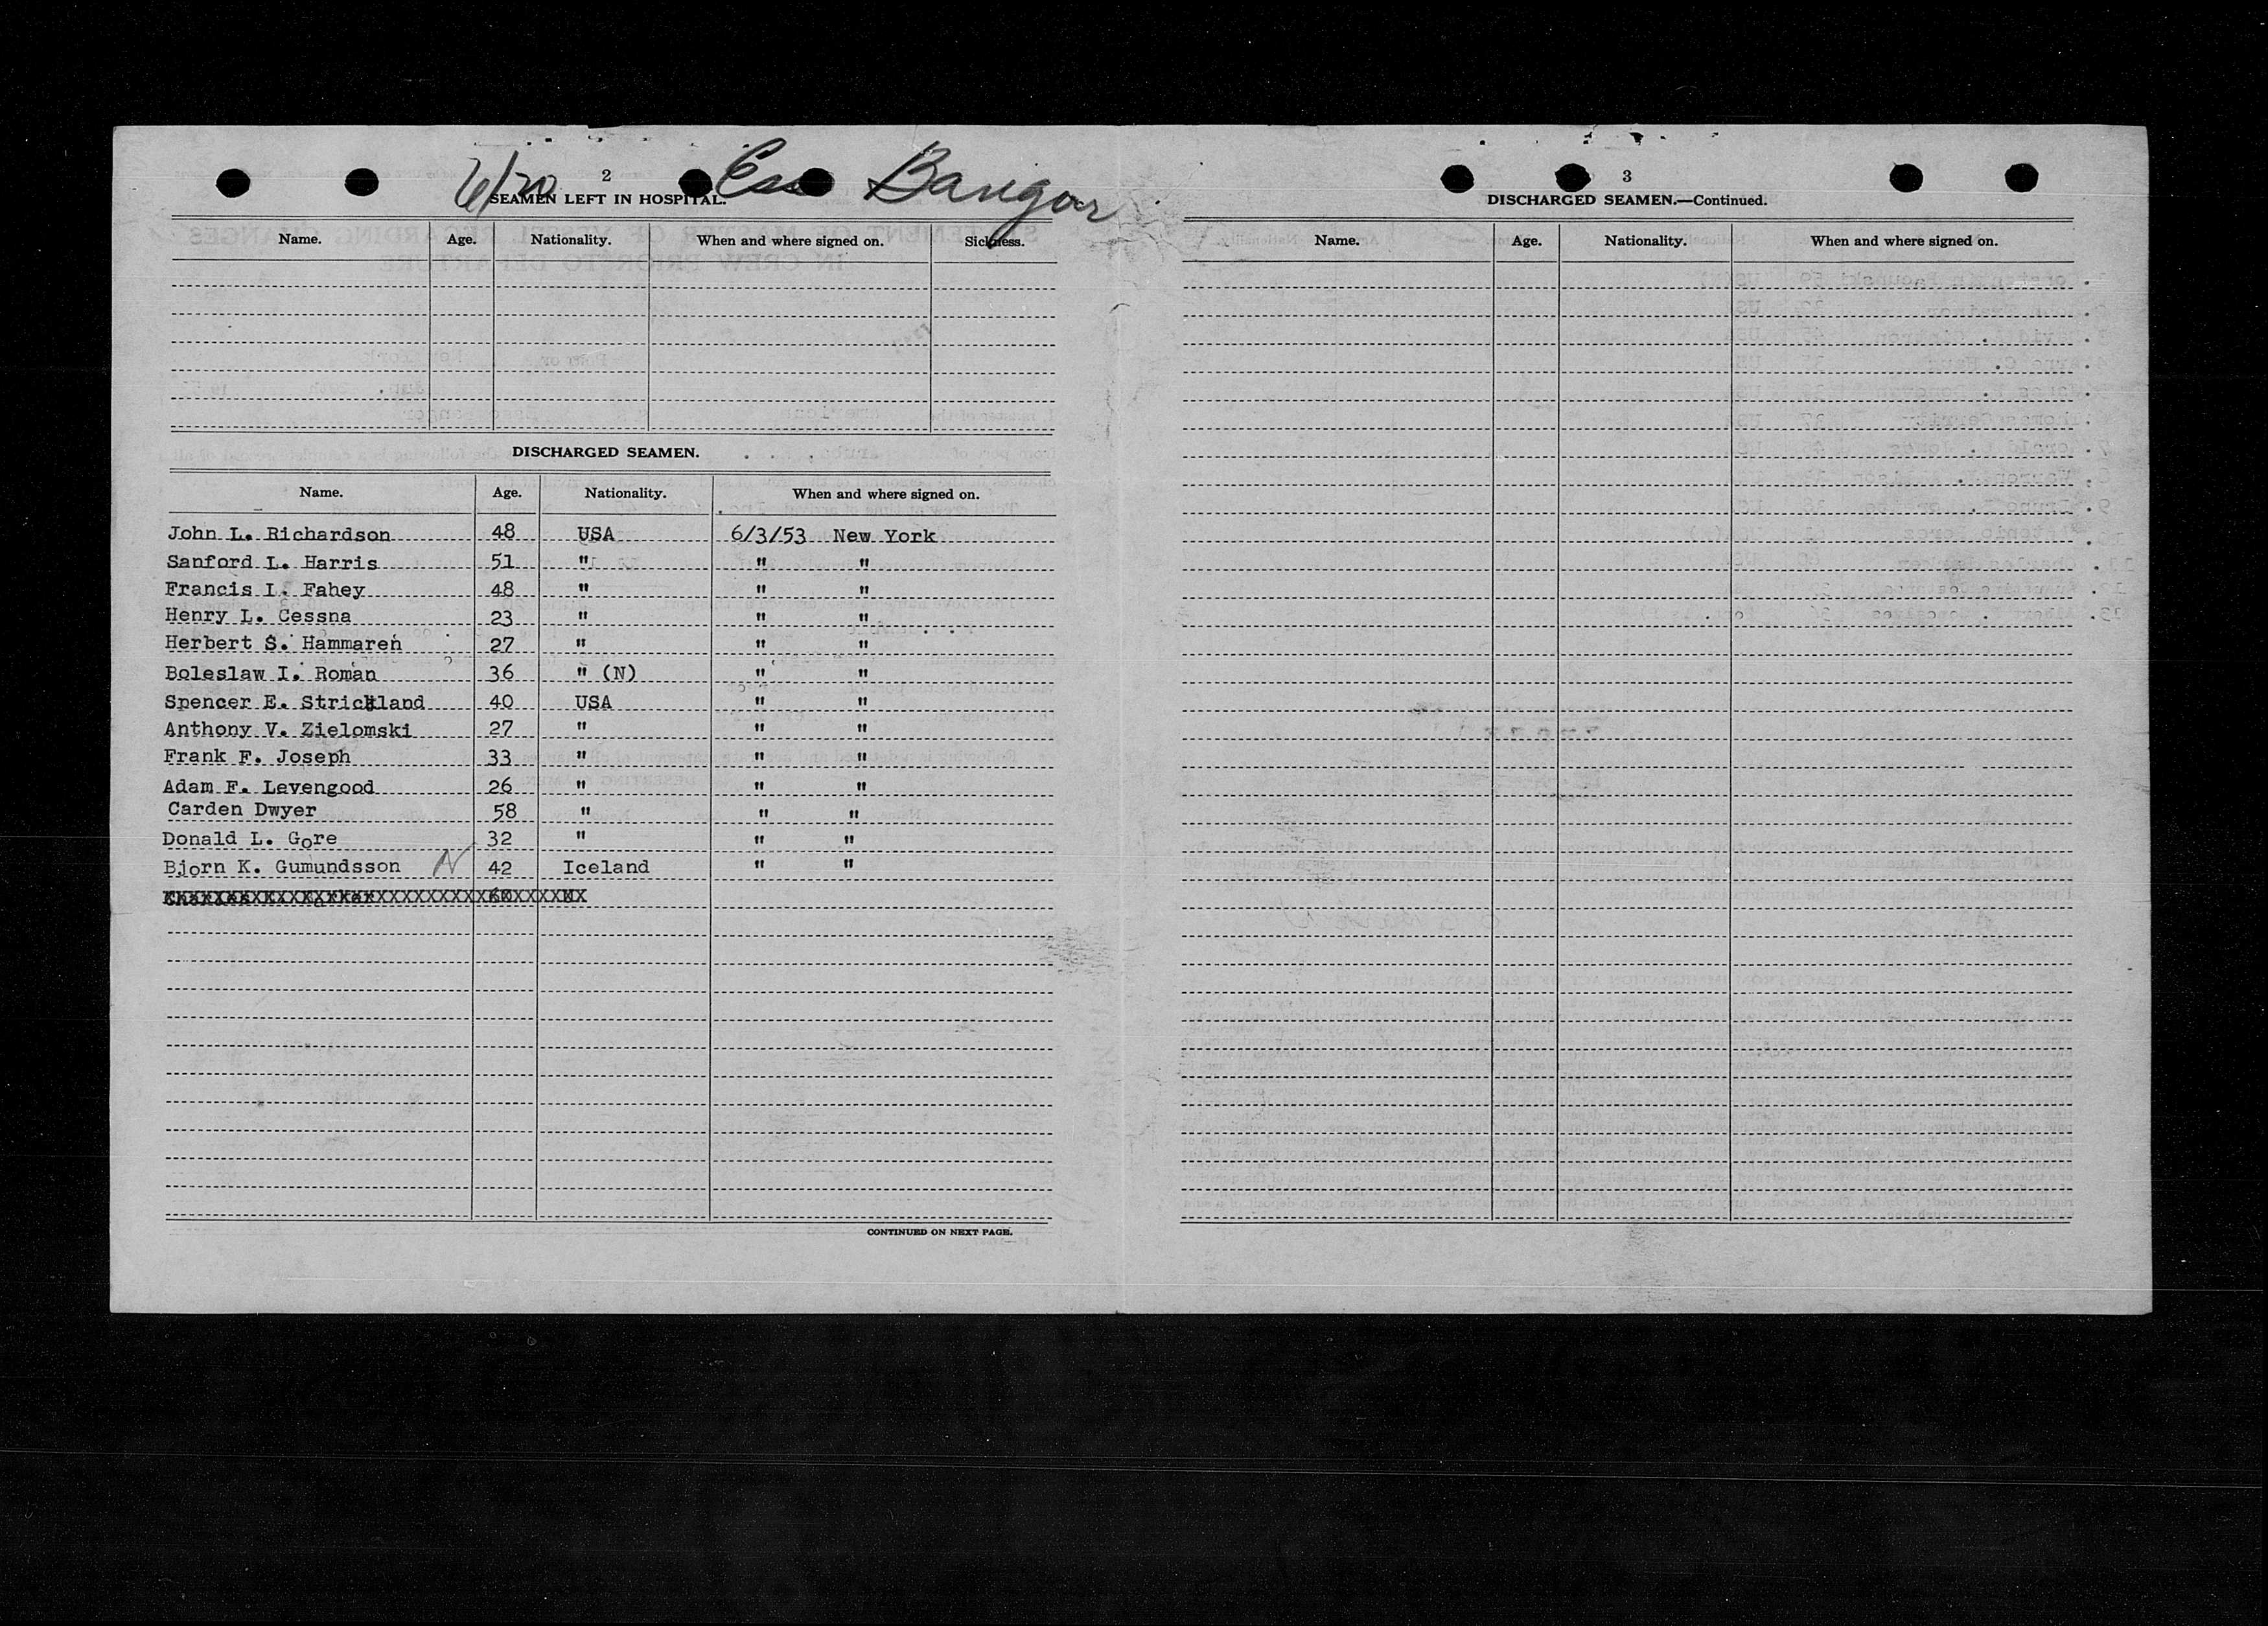 6/20 Esso Bangor
2
SEAMEN LEFT IN HOSPITAL.
Name. Age. Nationality. When and where signed on. Sickness.
DISCHARGED SEAMEN.
Name. Age. Nationality. When and where signed on.
John L. Richardson 48 USA 6/3/53 New York
Sanford L. Harris 51 " " "
Francis I. Fahey 48 " " "
Henry L. Cessna 23 " " "
Herbert S. Hammaren 27 " " "
Boleslaw I. Roman 36 " (N) " "
Spencer E. Strickland 40 USA " "
Anthony V. Zielomski 27 " " "
Frank F. Joseph 33 " " "
Adam F. Levengood 26 " " "
Carden Dwyer 58 " " "
Donald L. Gore 32 " " "
Bjorn K. Gumundsson N 42 Iceland " "
CONTINUED ON NEXT PAGE.
3
DISCHARGED SEAMEN.—Continued.
Name. Age. Nationality. When and where signed on.